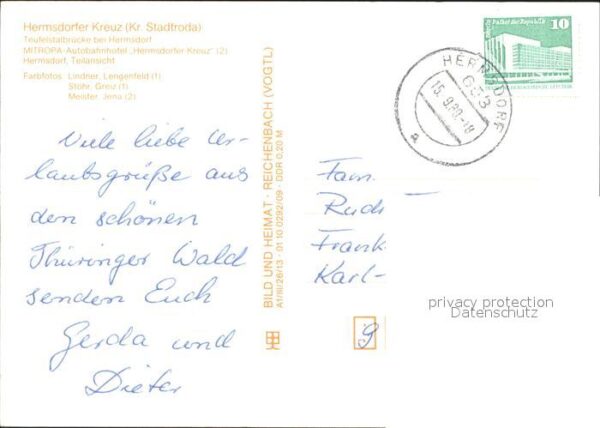 Hermsdorfer Kreuz (Kr. Stadtroda)
Teufelstalbrücke bei Hermsdorf
MITROPA-Autobahnhotel „Hermsdorfer Kreuz“ (2)
Hermsdorf, Teilansicht
Farbfotos: Lindner, Lengenfeld (1)
Stöhr, Greiz (1)
Meister, Jena (2)
Viele liebe Ur-
laubsgrüße aus
den schönen
Thüringer Wald
senden Euch
Gerda und
Dieter
BILD UND HEIMAT · REICHENBACH (VOGTL)
A1/III/26/13 01 10 0292/09 · DDR 0,20 M
Palast der Republik
10
HERMSDORF
653
15.9.80-18
a
Fam.
Rud
Frank
Karl-
9
privacy protection
Datenschutz